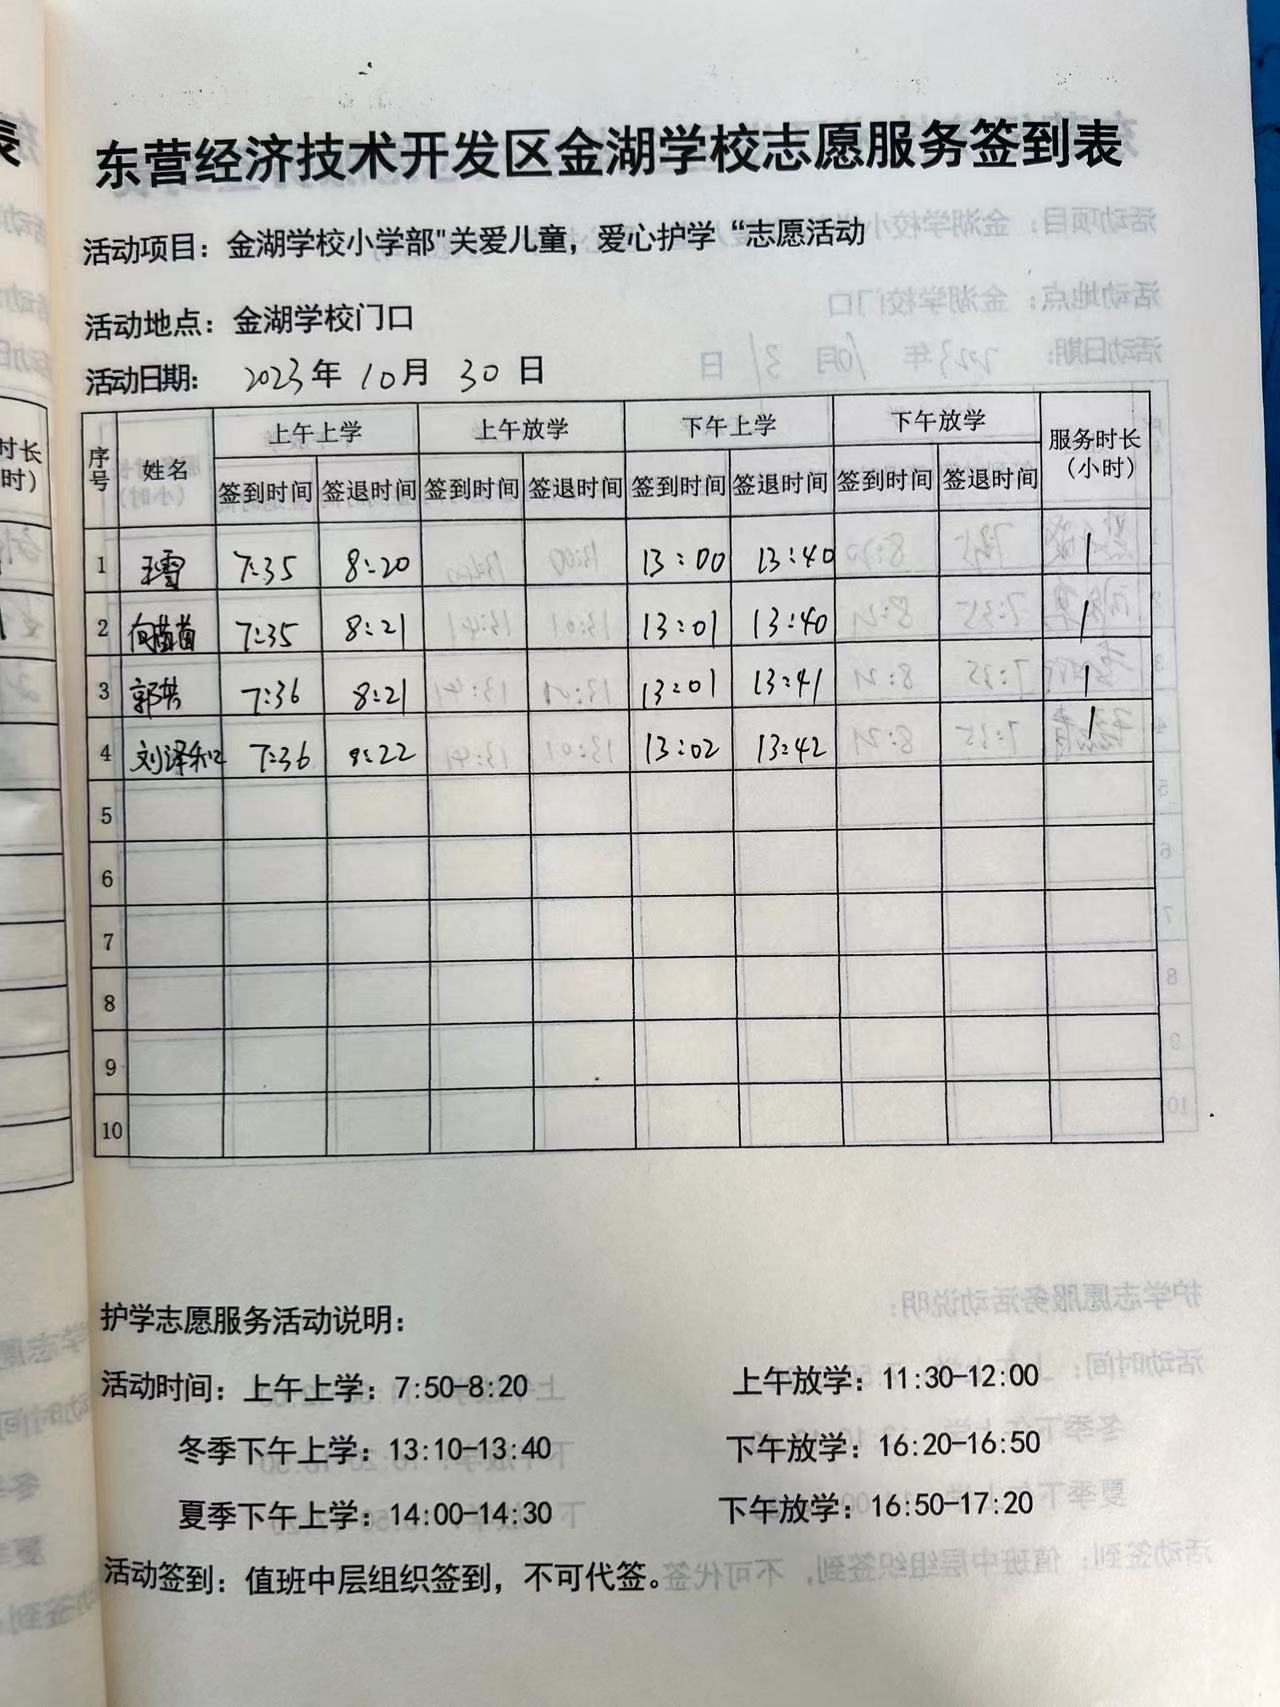 东营经济技术开发区金湖学校志愿服务签到表
活动项目：金湖学校小学部"关爱儿童，爱心护学“志愿活动
活动地点：金湖学校门口
活动日期： 2023年 10月 30日
序号 姓名 上午上学 上午放学 下午上学 下午放学 服务时长（小时）
签到时间 签退时间 签到时间 签退时间 签到时间 签退时间 签到时间 签退时间
1 王雪 7:35 8:20 13:00 13:40 1
2 向苗苗 7:35 8:21 13:01 13:40 1
3 7:36 8:21 13:01 13:41 1
4 刘泽和 7:36 8:22 13:02 13:42 1
5
6
7
8
9
10
护学志愿服务活动说明：
活动时间：上午上学：7:50-8:20 上午放学：11:30-12:00
冬季下午上学：13:10-13:40 下午放学：16:20-16:50
夏季下午上学：14:00-14:30 下午放学：16:50-17:20
活动签到：值班中层组织签到，不可代签。